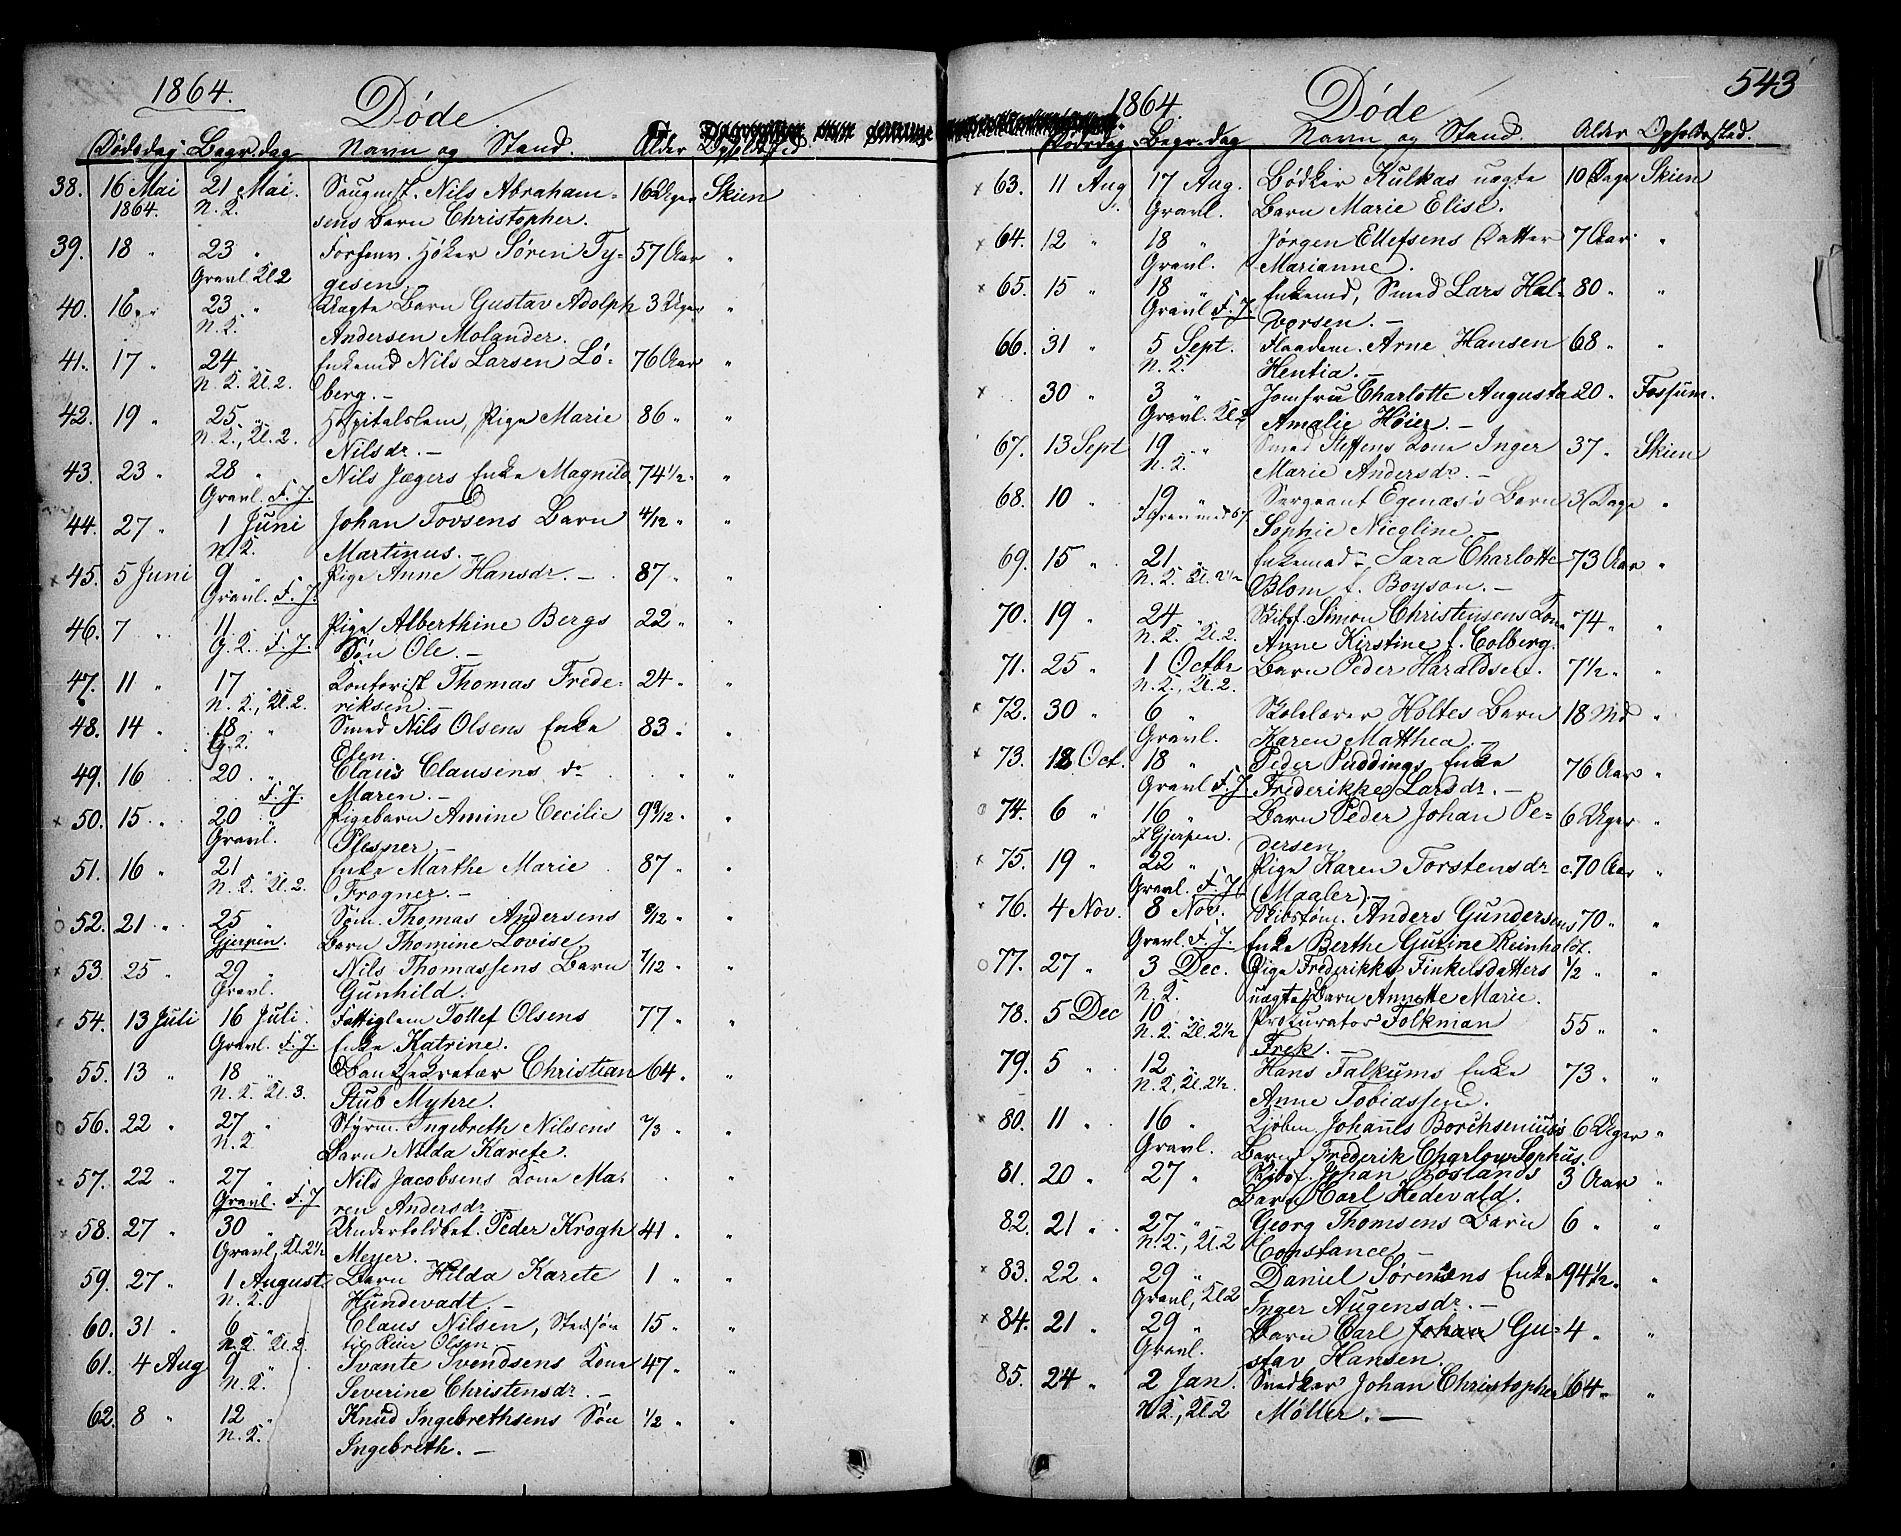 1864.
Døde.
Dødsdag. Begr.dag Navn og Stand. Alder Opholdssted
38. 16 Mai 21 Mai. Saugmst. Nils Abraham= 16 Uger Skien
1864. N. K. sens Barn Christopher.
39. 18 " 23 " Forhenv. Høker Søren Ty= 57 Aar "
Gravl. Kl 2 gesen.
40. 16 " 23 " Uægte Barn Gustav Adolph 3 Uger "
N. K. Andersen Molander.
41. 17 " 24 " Enkemd Nils Larsen Lø- 76 Aar "
N. K. Kl. 2. berg. —
42. 19 " 25 " Hospitalslem, Pige Marie 86 " "
N. K., Kl. 2. Nilsdr. —
43. 23 " 28 " Nils Jægers Enke Magnild 74 1/2 " "
Gravl. F. J.
44. 27 " 1 Juni Johan Tovsens Barn 4/12 " "
N. K. Martinus. —
x 45. 5 Juni 9 " Pige Anne Hansdr. — 87 " "
Gravl. F. J.
46. 7 " 11 Pige Alberthine Bergs 22 " "
G. K. F. J. Søn Ole. —
47. 11 " 17 " Kontorist Thomas Frede- 24 " "
N. K., Kl. 2. riksen. —
48. 14 " 18 " Smed Nils Olsens Enke 83 " "
G. K. Elen.
49. 16 20 " Claus Clausens do " "
F. J. Maren. —
x 50. 15 " 20 " Pigebarn Amine Cecilie 9 9/12 " "
Gravl. Plesner. —
51. 16 " 21 " Enke Marthe Marie 87 " "
N. K. Kl. 2. Frogner. —
o 52. 21 " 25 " Søm. Thomas Andersens 9/12 " "
Gjerpen. Barn Thomine Lovise.
x 53. 25 " 29 " Nils Thomassens Barn 7/12 " "
Gravl. Gunhild.
x 54. 13 Juli 16 Juli Fattiglem Tollef Olsens 77 " "
Gravl. F. J. Enke Katrine.
55. 13 " 18 " Banksekretær Christian 64 " "
N. K. Kl. 3. Stub Myhre.
o 56. 22 " 27 " Styrm. Ingebreth Nilsens 2/3 " "
N. K Barn Nilda Karete.
x 57. 22 " 27 " Nils Jacobsens Kone Ma- "
Gravl. F. J ren Andersdr
x 58. 27 " 30 " Undertoldbet. Peder Krogh 41 " "
Gravl, Kl. 2 1/2 Meyer. —
59. 27 " 1 August Barn Hilda Karete 1 " "
N. K. Hundevadt. —
60. 31 " 6 " Claus Nilsen, Stedsøn 15 " "
N. K. Kl. 2. til Reier Olsen —
61. 4 Aug 9 " Svante Svendsens Kone 47 " "
N. K. Severine Christensdr. —
62. 8 " 12 " Knud Ingebrethsens Søn 1/2 " "
N. K. Ingebreth. —
543
1864.
Døde
Dødsdag Begr.dag Navn og Stand Alder Opholdssted.
x 63. 11 Aug 17 Aug. Bødker Kulkas uægte 10 Dage Skien
Gravl. Barn Marie Elise.
x 64. 12 " 18 " Jørgen Ellefsens Datter 7 Aar "
Gravl. Marianne.
x 65. 15 " 18 " Enkemd, Smed Lars Hal- 80 " "
Gravl F. J. vorsen. —
66. 31 " 5 Sept. Flaadem. Arne Hansen 68 " "
N. K. Hentia. —
x 30 " 3 " Jomfru Charlotte Augusta 20 " Fossum.
Gravl. Kl 2 Amalie Høier. —
67. 13 Sept 19 " Smed Steffens Kone Inger 37 " Skien
N. K. Marie Andersdr. —
68. 10 " 19 " Sergeant Egenæs's Barn 3 Dage "
Sophie Nicoline —
69. 15 " 21 " Enkemad- Sara Charlotte 73 Aar "
N. K. Kl. 2 1/2 Blom f. Boyson. —
70. 19 " 24 " Skibsf. Simon Christensens Kone 74 " "
N. K. Kl. 2. Anne Kirstine f. Colberg.
71. 25 " 1 Octbr Barn Peder Haraldsen. 7 1/2 " "
N. K., Kl. 2.
x 72. 30 " 6 " Skolelærer Holtes Barn 18 Md "
Gravl. Karen Matthea. —
x 73. 12 Oct. 18 " Peder Puddings Enke 76 Aar "
Gravl F. J. Frederikke Larsdr. —
o 74. 6 " 16 " Barn Peder Johan Pe= 6 Uger "
I Gjerpen. dersen.
x 75. 19 " 22 " Pige Karen Torstensdr c. 70 Aar "
Gravl. F. J (Magler). —
x 76. 4 Nov. 8 Nov. Skibstøm. Anders Gundersens 70 " "
Gravl. F. J. Enke Berthe Gurine Reinholdt.
o 77. 27 " 3 Dec. Pige Frederikke Finkelsdatters 1/2 " "
N. K. uægte Barn Annette Marie.
78. 5 Dec 10 " Prokurator Folkman 55 " "
N. K. Kl. 2 1/2 Frek. —
79. 5 " 12 " Hans Falkums Enke 73 " "
N. K, Kl. 2 1/2. Anne Tobiassen.
x 80. 11 " 16 " Kjøbm. Johannes Borchsenius's 6 Uger "
Gravl. Barn Frederik Charlow Sophus.
81. 20 " 27 " Skibsf. Johan Roslands 3 Aar "
Barn Carl Hedevald.
82. 21 " 27 " Georg Thomsens Barn 6 " "
N. K., Kl. 2 Constance —
x 83. 22 " 29 " Daniel Sørensens Enke 94 1/2 " "
Gravl, Kl 2 Inger Augensdr. —
x 84. 21 " 29 " Barn Carl Johan Gu= 4 " "
Gravl. stav Hansen.
85. 24 " 2 Jan. Snedker Johan Christopher 64 " "
N. K., Kl. 2 Møller. —